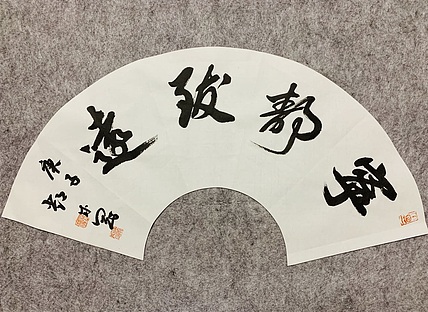 寧静致遠
庚子